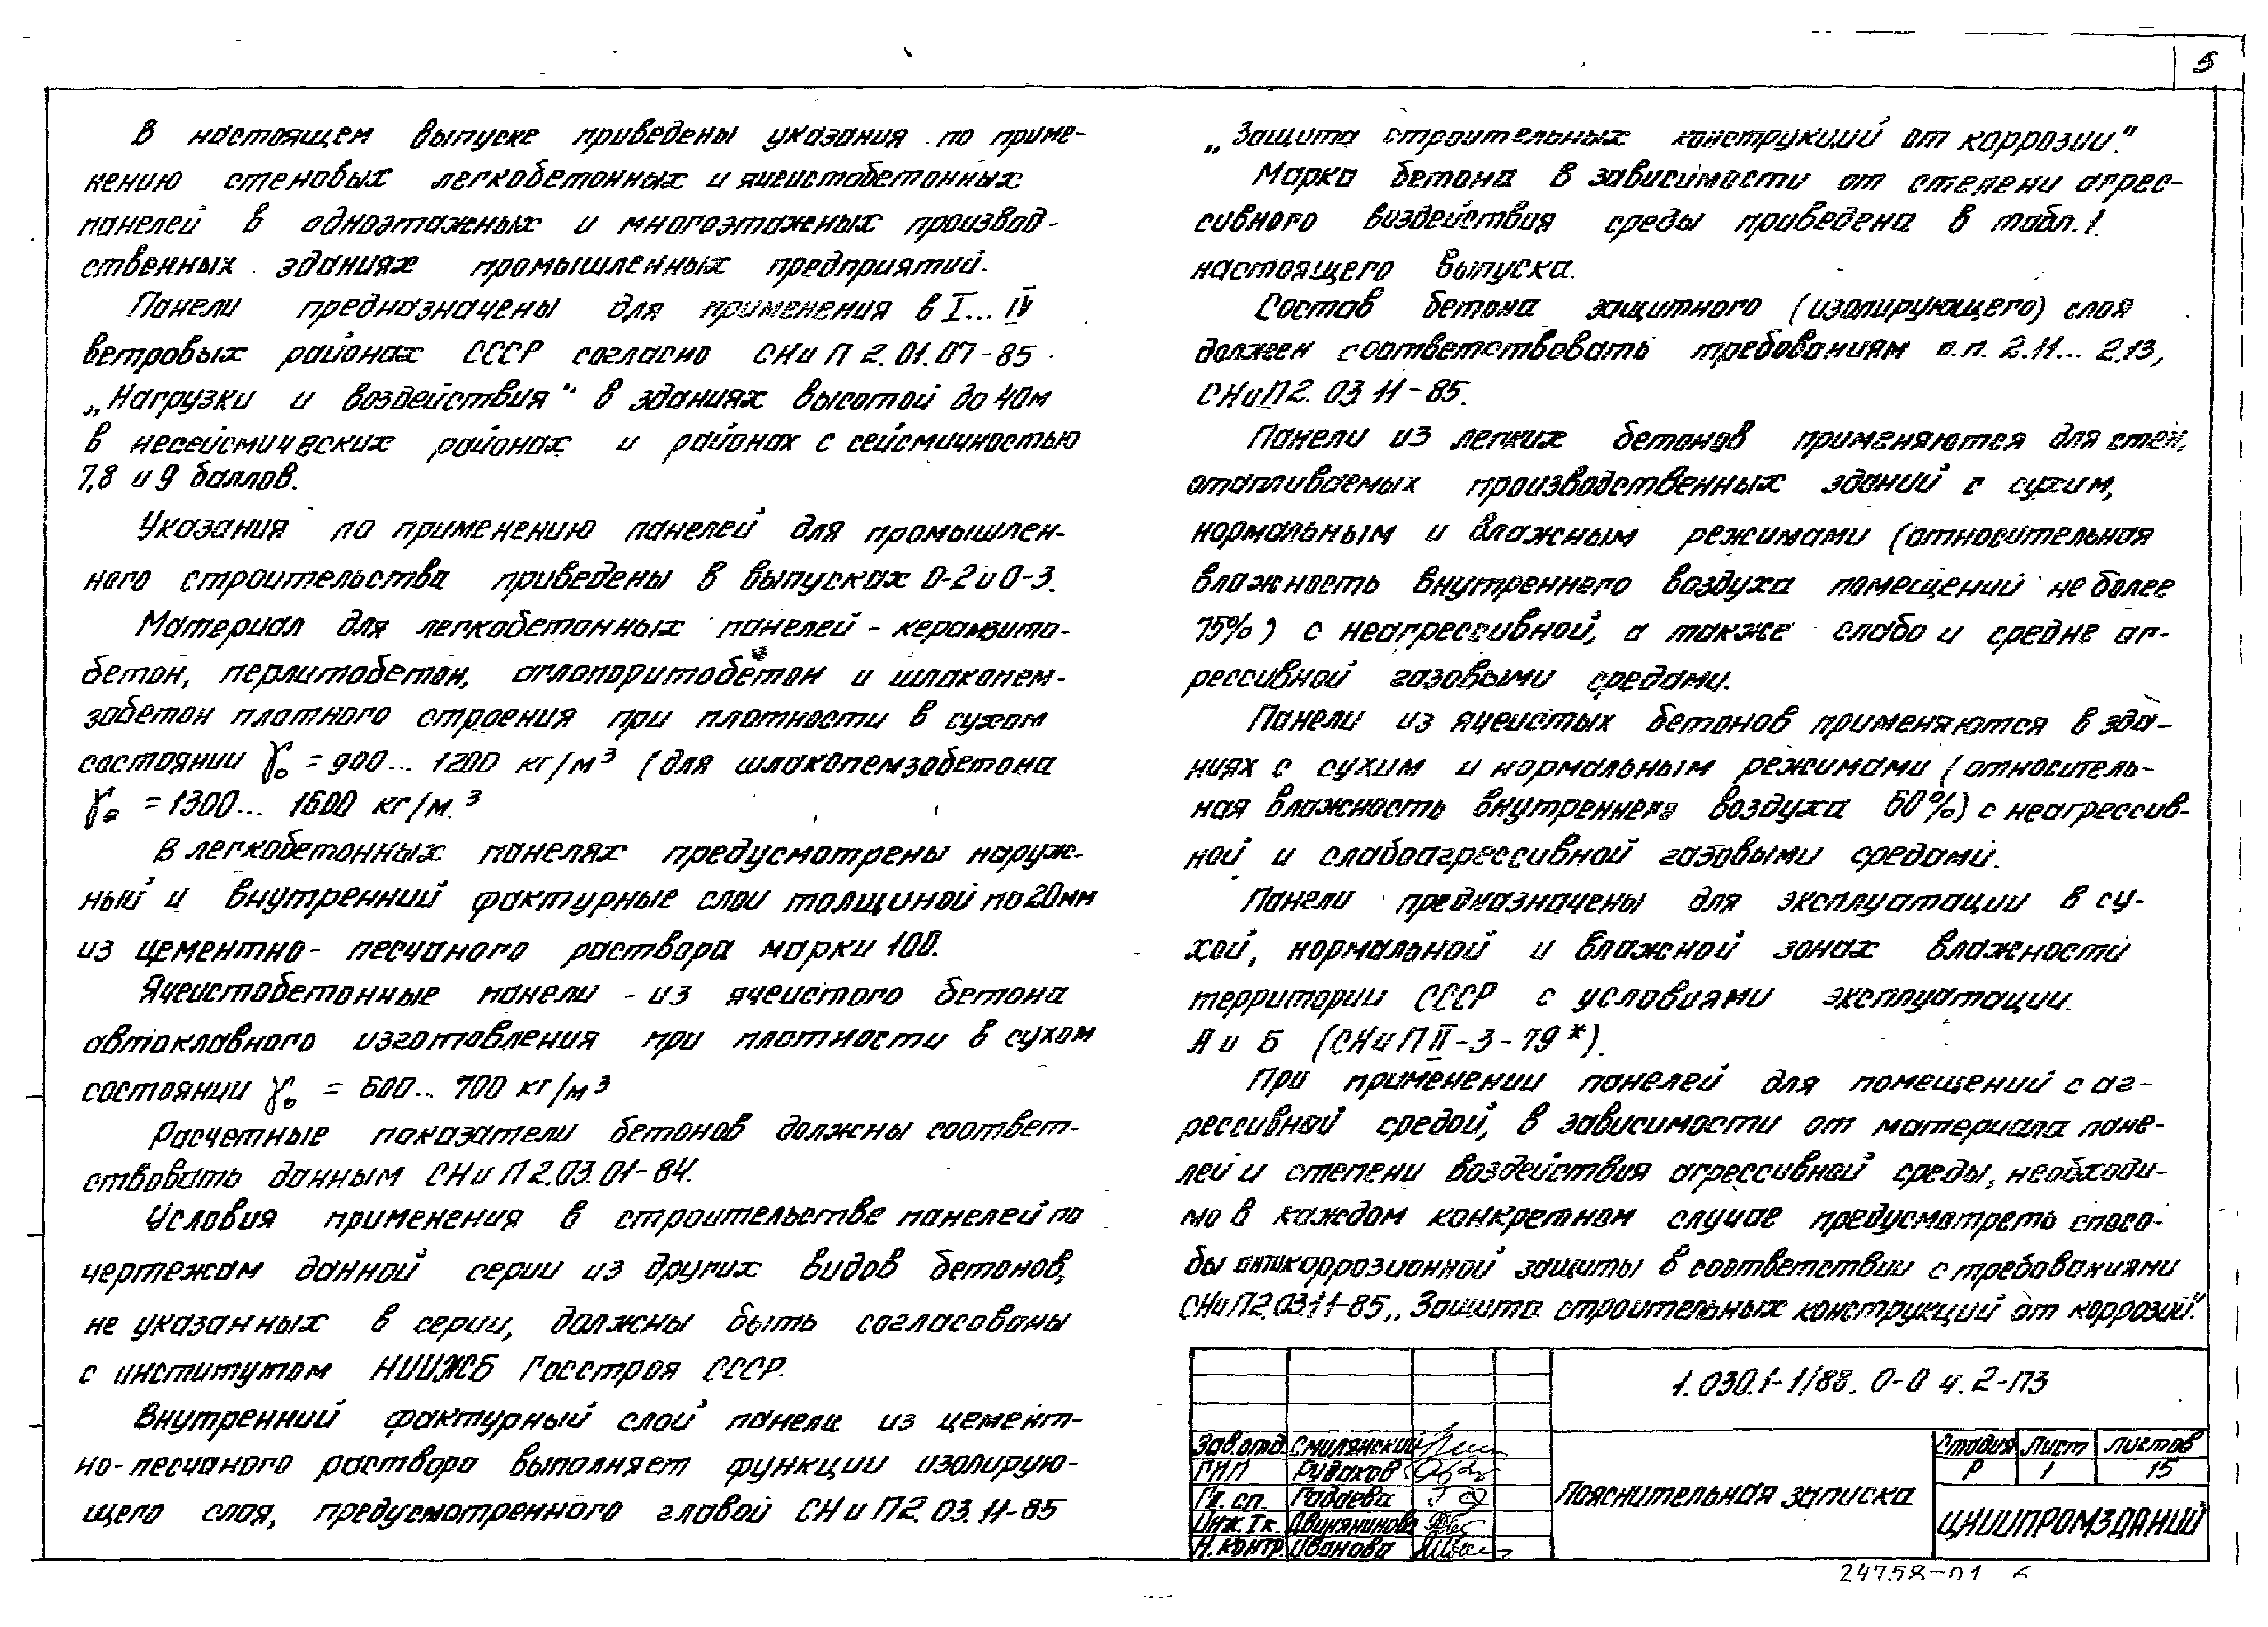 5
В настоящем выпуске приведены указания по приме-
нению стеновых легкобетонных и ячеистобетонных
панелей в одноэтажных и многоэтажных производ-
ственных зданиях промышленных предприятий.
Панели предназначены для применения в I... IV
ветровых районах СССР согласно СНиП 2.01.07-85
„Нагрузки и воздействия" в зданиях высотой до 40м
в несейсмических районах и районах с сейсмичностью
7,8 и 9 баллов.
Указания по применению панелей для промышлен-
ного строительства приведены в выпусках 0-2 и 0-3.
Материал для легкобетонных панелей - керамзито-
бетон, перлитобетон, аглопоритобетон и шлакопем-
зобетон плотного строения при плотности в сухом
состоянии γ₀ = 900... 1200 кг/м³ (для шлакопемзобетона
γ₀ = 1300... 1600 кг/м.³
В легкобетонных панелях предусмотрены наруж-
ный и внутренний фактурные слои толщиной по 20мм
из цементно-песчаного раствора марки 100.
Ячеистобетонные панели - из ячеистого бетона
автоклавного изготовления при плотности в сухом
состоянии γ₀ = 600... 700 кг/м³
Расчетные показатели бетонов должны соответ-
ствовать данным СНиП 2.03.01-84.
Условия применения в строительстве панелей по
чертежам данной серии из других видов бетонов,
не указанных в серии, должны быть согласованы
с институтом НИИЖБ Госстроя СССР.
Внутренний фактурный слой панели из цемент-
но-песчаного раствора выполняет функции изолирую-
щего слоя, предусмотренного главой СНиП 2.03.11-85
„Защита строительных конструкций от коррозии".
Марка бетона в зависимости от степени агрес-
сивного воздействия среды приведена в табл.1.
настоящего выпуска.
Состав бетона защитного (изолирующего) слоя
должен соответствовать требованиям п.п. 2.11... 2.13,
СНиП2.03.11-85.
Панели из легких бетонов применяются для стен,
отапливаемых производственных зданий с сухим,
нормальным и влажным режимами (относительная
влажность внутреннего воздуха помещений не более
75%) с неагрессивной, а также слабо и средне аг-
рессивной газовыми средами.
Панели из ячеистых бетонов применяются в зда-
ниях с сухим и нормальным режимами (относитель-
ная влажность внутреннего воздуха 60%) с неагрессив-
ной и слабоагрессивной газовыми средами.
Панели предназначены для эксплуатации в су-
хой, нормальной и влажной зонах влажности
территории СССР с условиями эксплуатации.
А и Б (СНиП II-3-79*).
При применении панелей для помещений с аг-
рессивной средой, в зависимости от материала пане-
лей и степени воздействия агрессивной среды, необходи-
мо в каждом конкретном случае предусмотреть спосо-
бы антикоррозионной защиты в соответствии с требованиями
СНиП2.03.11-85 „Защита строительных конструкций от коррозий".
1.030.1-1/88. 0-0 ч. 2-ПЗ
Зав.отд. Смилянский
ГИП Рудаков
Гл. сп. Гадаева
Инж.Iк. Двинянинова
Н.контр. Иванова
Пояснительная записка
Стадия Лист Листов
Р 1 15
ЦНИИПРОМЗДАНИЙ
24758-01 6